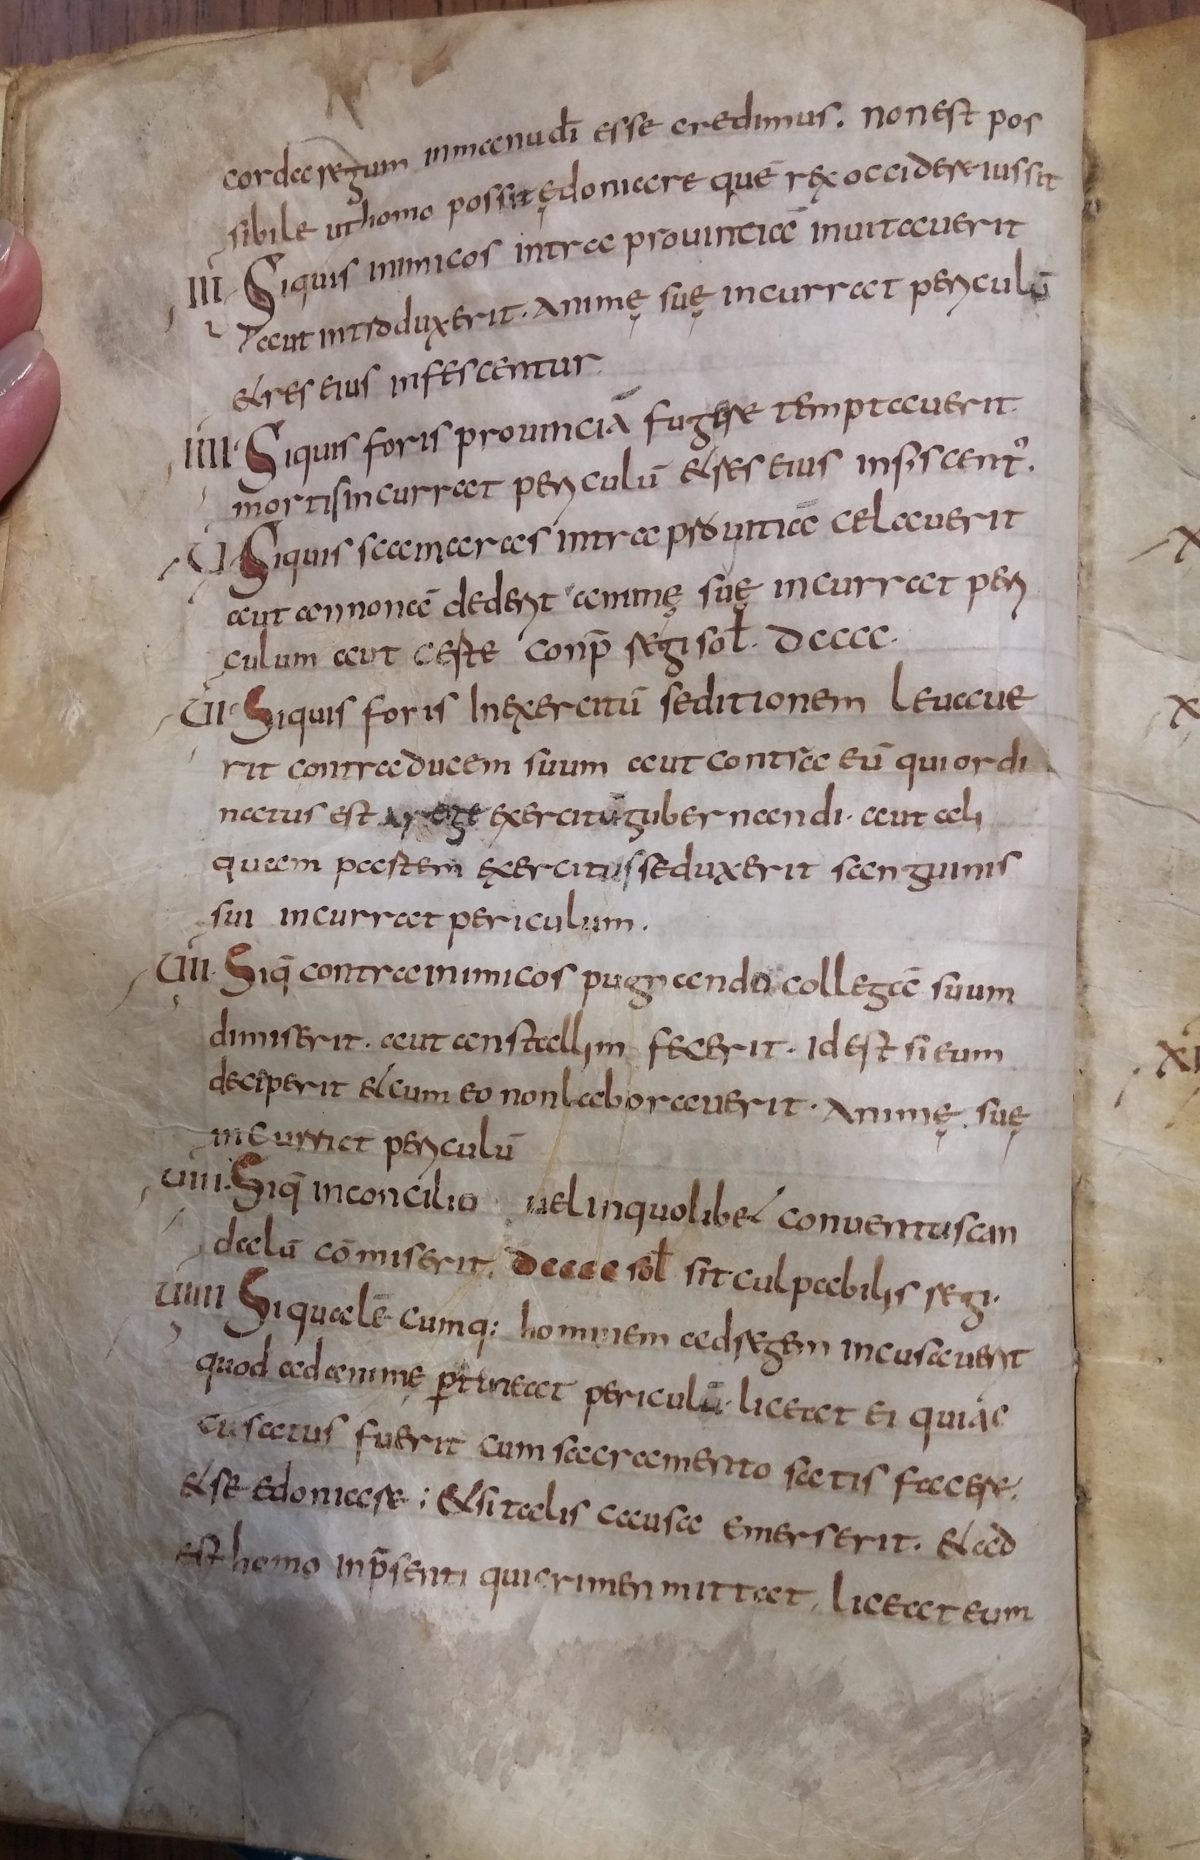 corda regum in manu dī esse credimus. non est pos
sibile ut homo possit ędoniare quē rex occidere iussit
III. Si quis inimicos intra prouinciā inuitauerit
aut introduxerit. Animę suę incurrat periculū
et res eius infiscentur.
IIII. Si quis foris prouinciā fugire temptauerit
mortis incurrat periculū et res eius infiscent᷒.
U. Si quis scamaras intra prouinciā celauerit
aut annonā dederit animę suę incurrat peri
culum aut certe conp̄ regi sol̄. DCCCC.
UI. Si quis foris In exercitū seditionem leuaue
rit contra ducem suum aut contra eū qui ordi
natus est a rege exercitū gubernandi. aut ali
quam partem exercitus seduxerit sanguinis
sui incurrat periculum.
UII. Si q̄ contra inimicos pugnando collegā suum
dimiserit. aut anstallim fecerit. Id est si eum
deciperit et cum eo non laborauerit. Animę suę
incurrat periculū
UIII. Si q̄ in concilio uel in quolibet conuentu scan
dalū cōmiserit. DCCCC sol̄ sit culpabilis regi.
UIIII Si qualē cumq; hominem ad regem incusauerit
quod ad animę ꝑtineat periculū. liceat ei qui ac
cusatus fuerit cum sacramento satis facere.
et se edoniare; Et si talis causa emerserit. Et ad
est homo in p̄senti qui crimen mittat, liceat eum